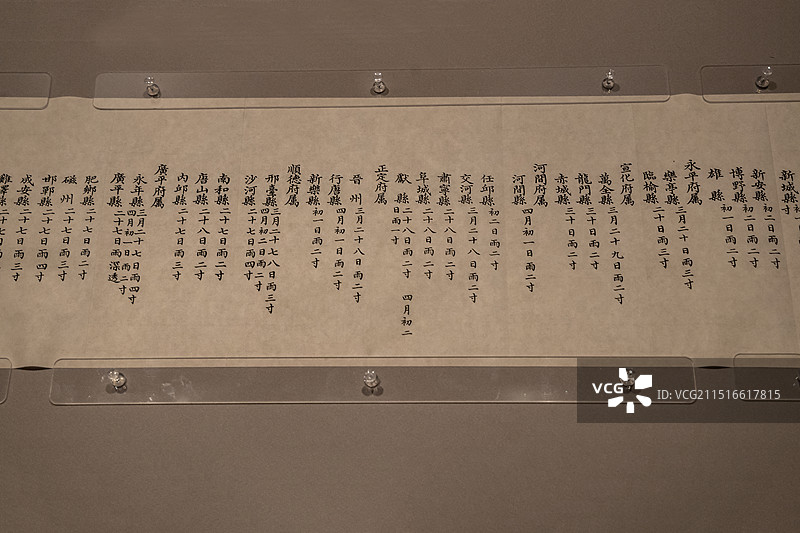 新城縣
寸
新安縣初二日雨二寸
博野縣初二日雨二寸
雄　縣初一日雨二寸
永平府属
樂亭縣三月二十日雨三寸
臨榆縣二十日雨三寸
宣化府属
萬全縣三月二十九日雨二寸
龍門縣三十日雨二寸
赤城縣三十日雨二寸
河間府属
河間縣四月初一日雨二寸
任邱縣初二日雨二寸
交河縣三月二十八日雨二寸
肅寧縣二十八日雨二寸
阜城縣二十八日雨二寸
獻　縣二十八日雨二寸　四月初二
日雨一寸
正定府属
晉　州三月二十八日雨二寸
行唐縣四月初一日雨二寸
新樂縣初一日雨二寸
順德府属
邢臺縣三月二十七八日雨三寸
四月初二日雨二寸
沙河縣二十七日雨四寸
南和縣二十七日雨二寸
唐山縣二十八日雨二寸
內邱縣二十七日雨三寸
廣平府属
永年縣三月二十七日雨四寸
四月初一日雨二寸
廣平縣二十七日雨深透
肥鄉縣二十七日雨二寸
磁　州二十七日雨三寸
邯鄲縣二十七日雨四寸
成安縣二十七日雨三寸
雞澤縣二十七日
VCG
ID: VCG211516617815